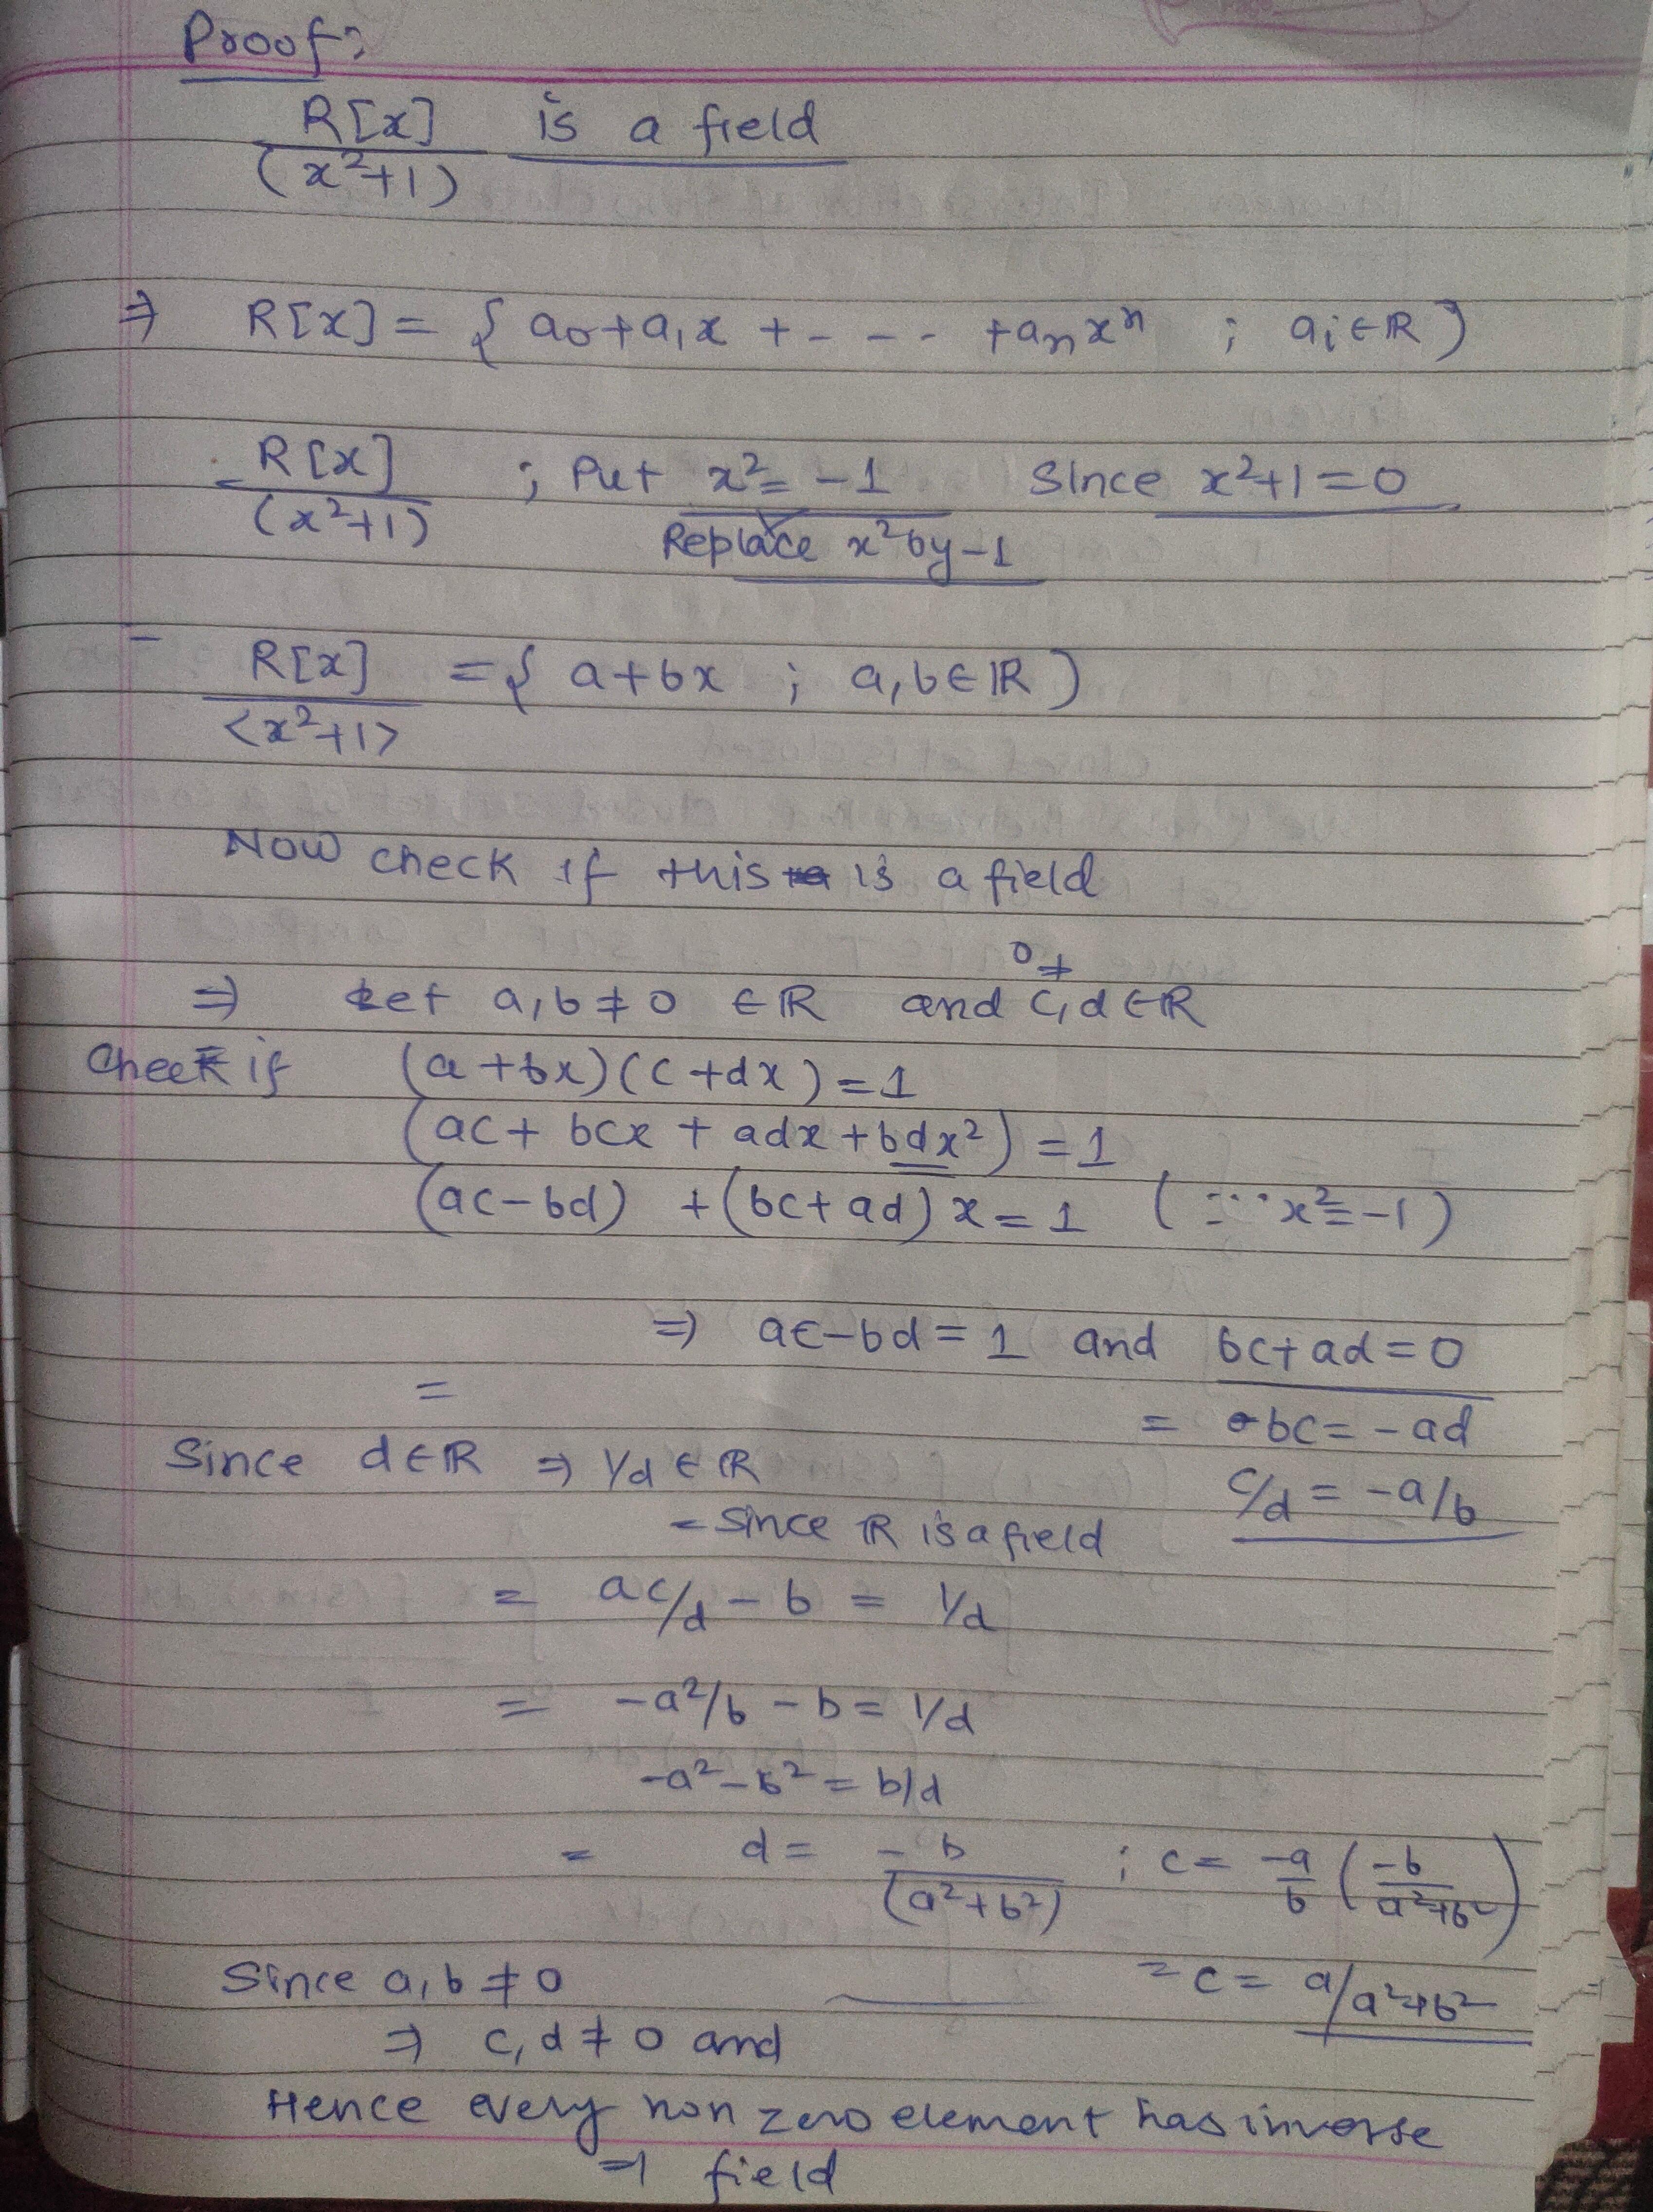 Proof:
R[x] is a field
(x²+1)
⇒ R[x] = { a₀+a₁x + - - - - +aₙxⁿ ; aᵢ∈ℝ }
- R[x] ; Put x²=-1 Since x²+1=0
(x²+1)
Replace x² by -1
- R[x] = { a+bx ; a,b∈ℝ }
<x²+1>
Now check if this is a field
⇒ Let a,b≠0 ∈ℝ and 0≠ c,d∈ℝ
Check if (a+bx)(c+dx)=1
(ac+ bcx + adx+bdx²) = 1
(ac-bd) +(bc+ad)x=1 (∵ x²=-1)
⇒ ac-bd=1 and bc+ad=0
=
= bc=-ad
Since d∈ℝ ⇒ 1/d∈ℝ
c/d = -a/b
- Since ℝ is a field
= ac/d - b = 1/d
= -a²/b - b = 1/d
-a²-b² = b/d
= d= -b/(a²+b²) ; c= -a/b (-b/a²+b²)
Since a,b≠0 = c= a/a²+b²
⇒ c,d≠0 and
Hence every non zero element has inverse
⇒ field